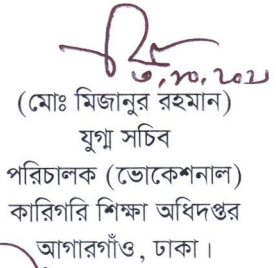 ৩,১০,২০২১
(মোঃ মিজানুর রহমান)
যুগ্ম সচিব
পরিচালক (ভোকেশনাল)
কারিগরি শিক্ষা অধিদপ্তর
আগারগাঁও, ঢাকা।